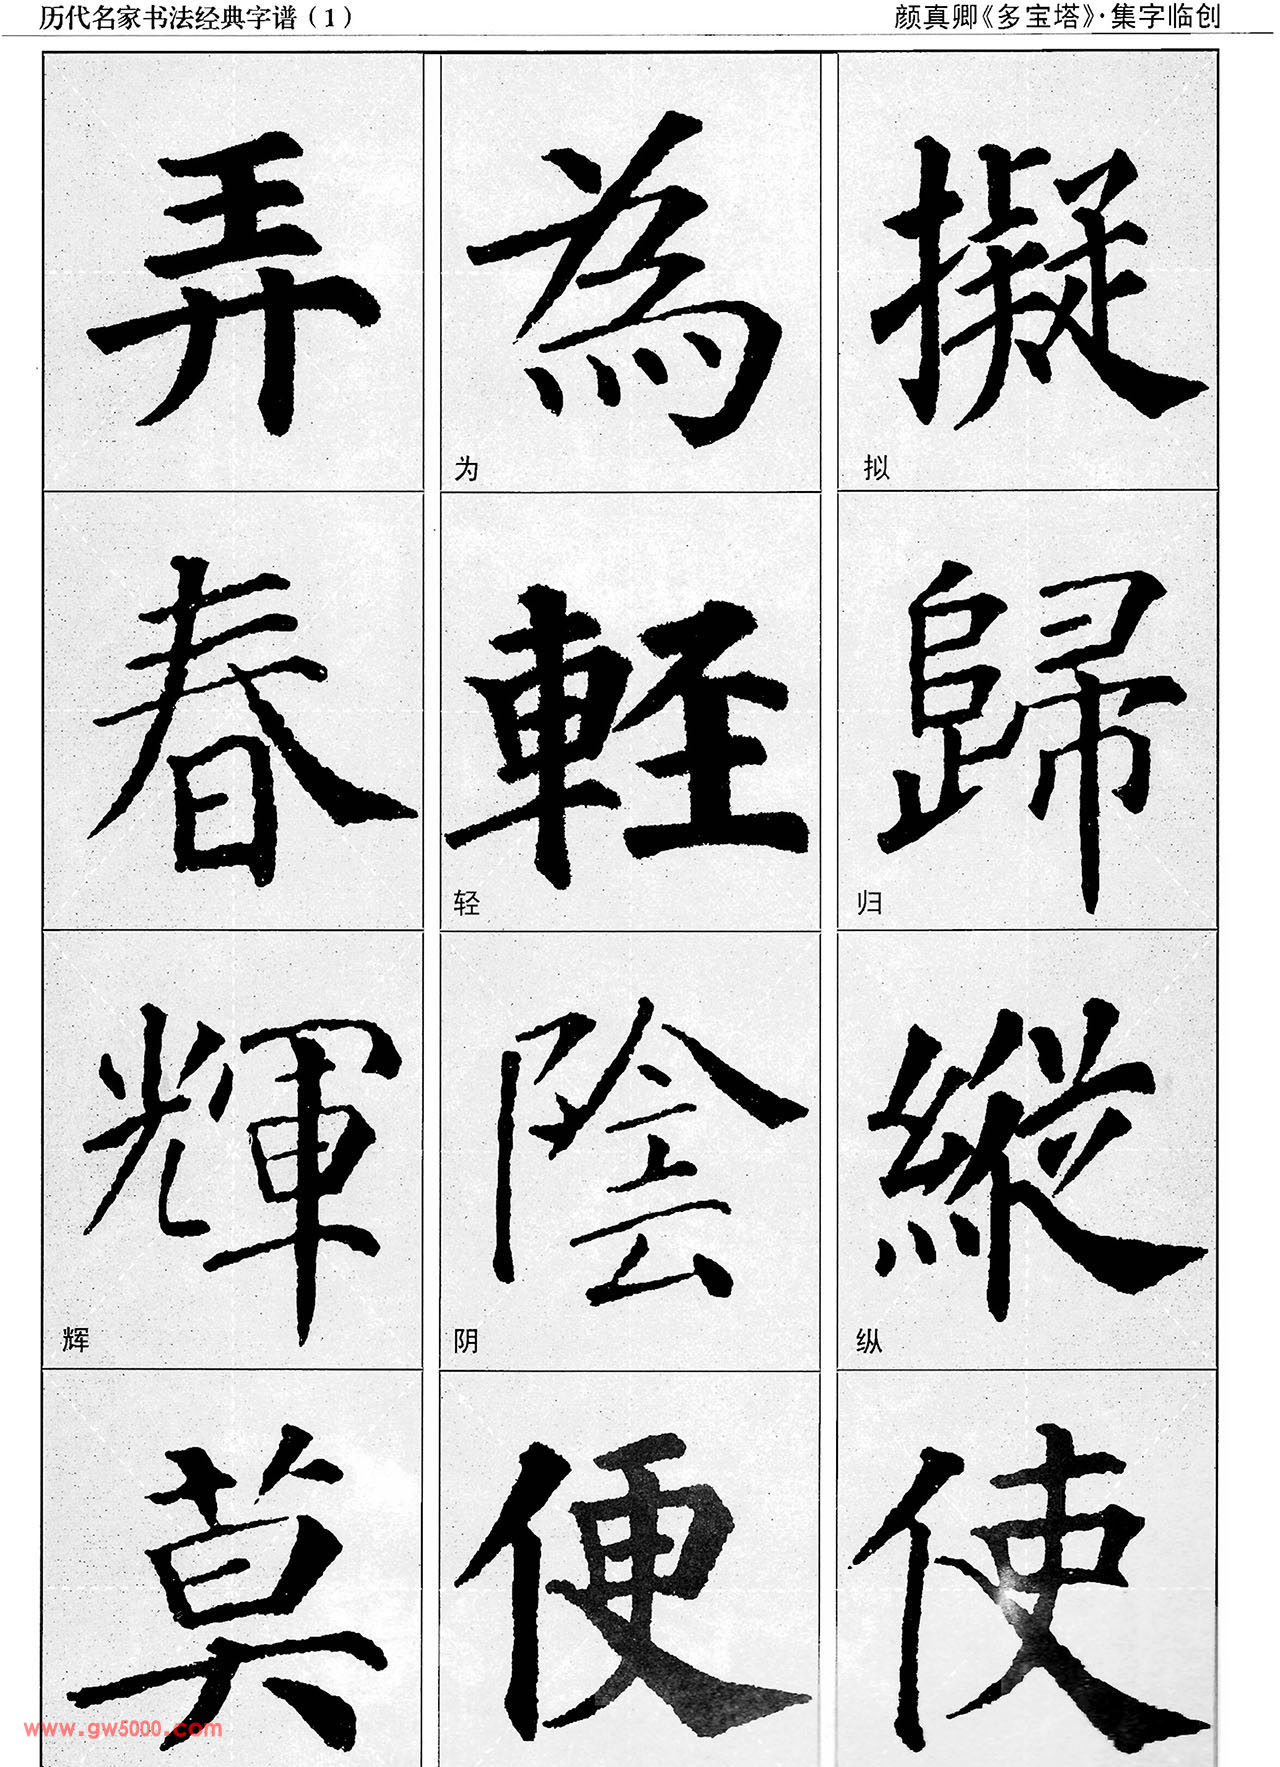 历代名家书法经典字谱（1）
颜真卿《多宝塔》·集字临创
弄為擬
为 拟
春輊歸
轻 归
輝陰縱
辉 阴 纵
莫便使
www.gw5000.com